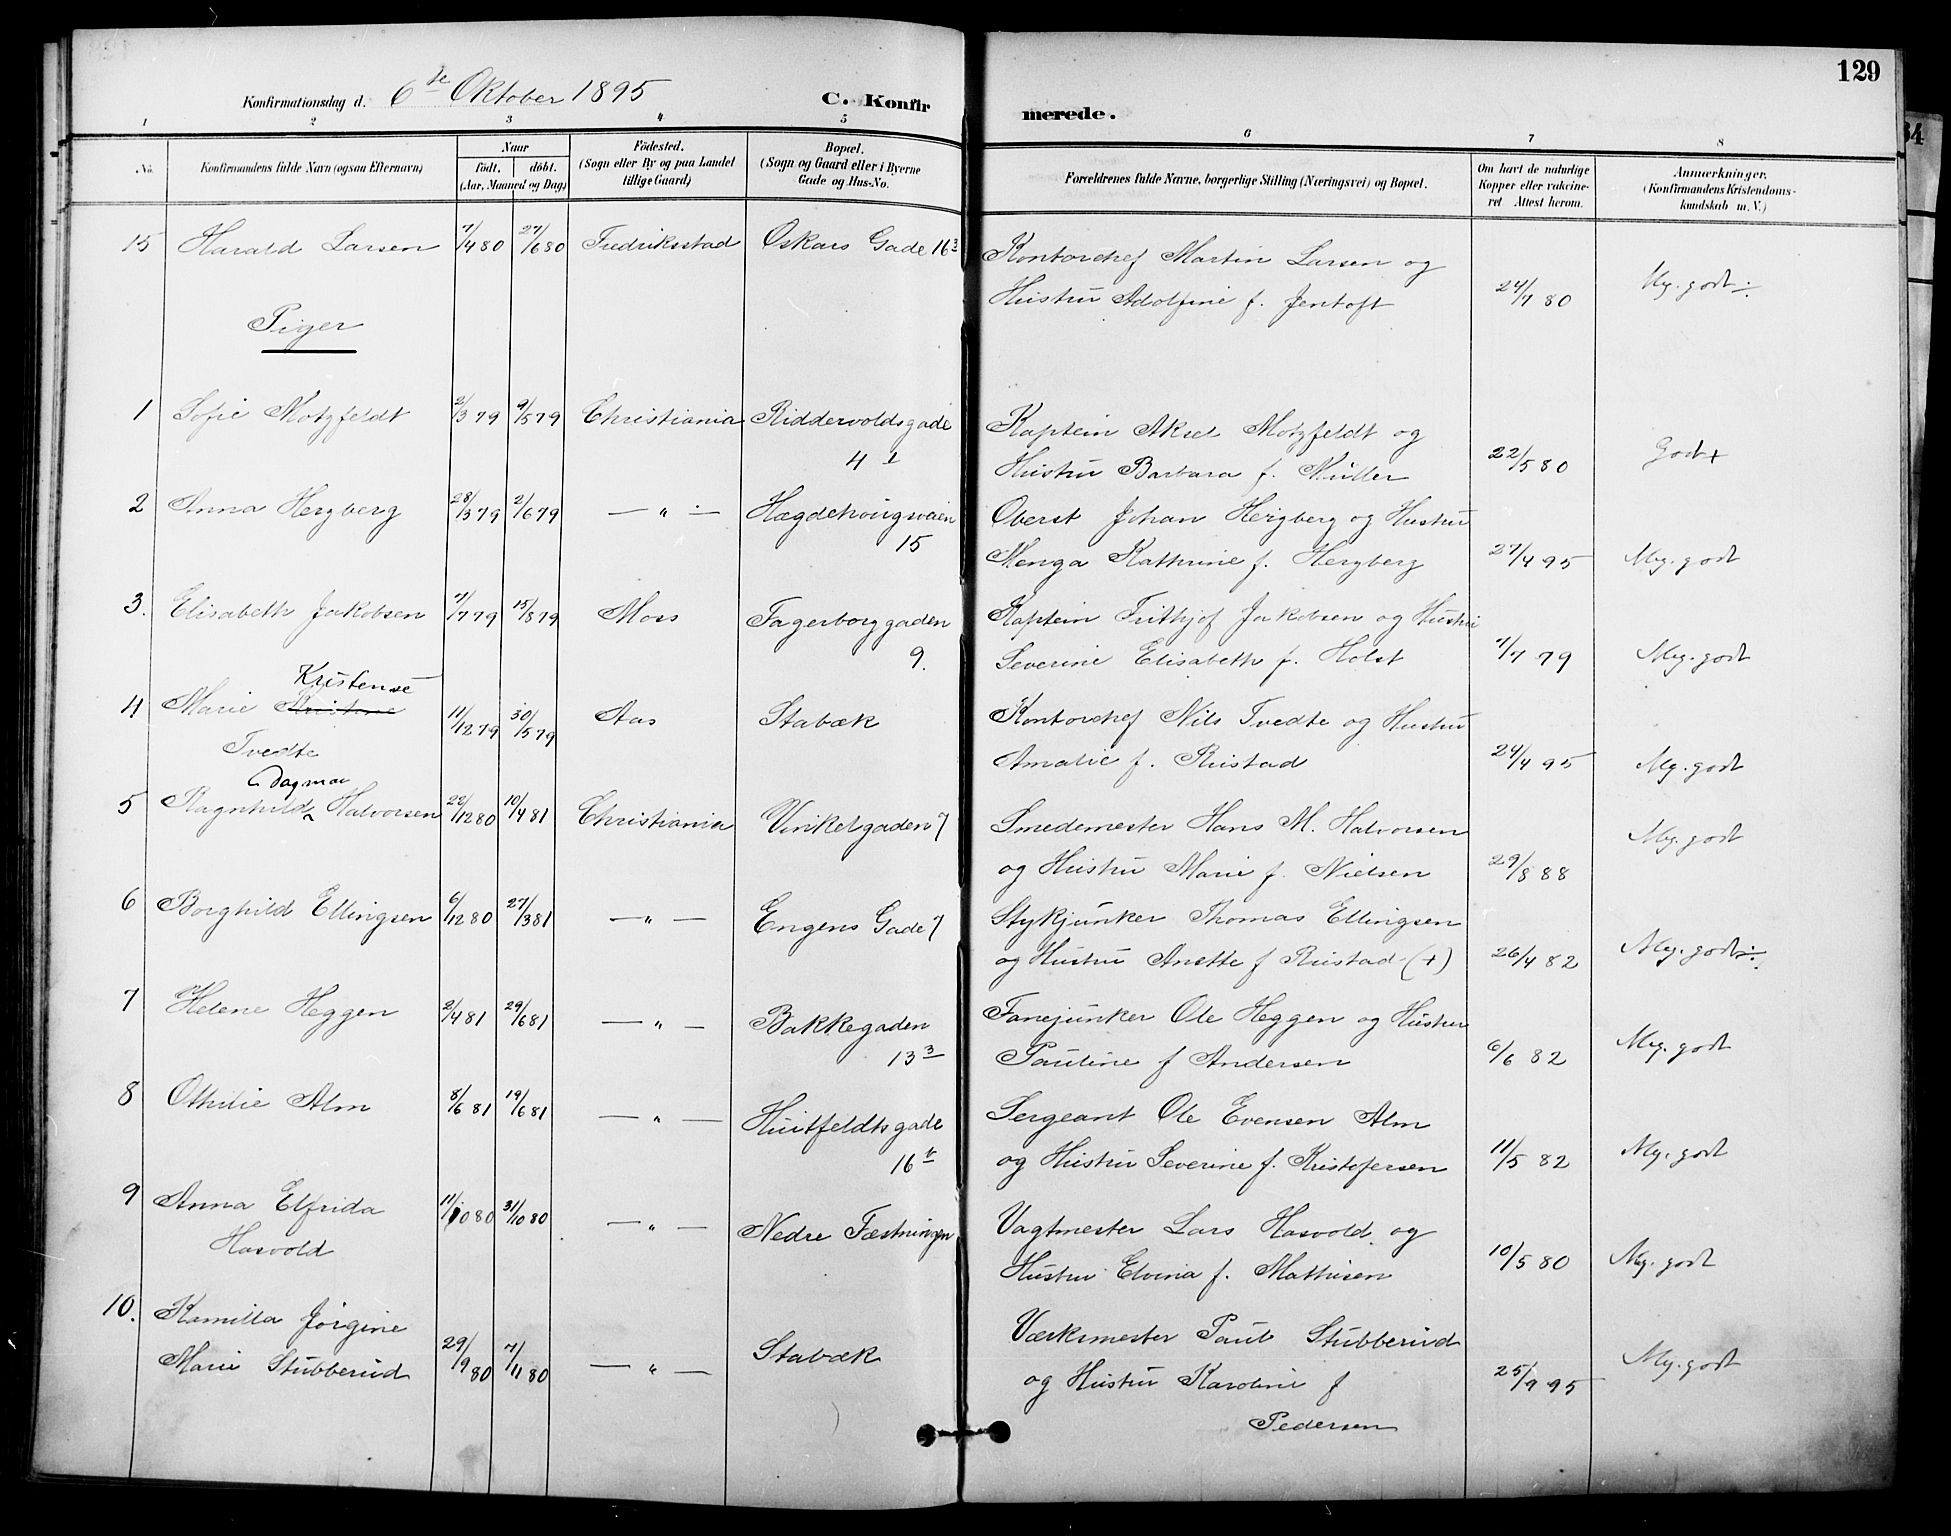 129
Konfirmationsdag d. 6te Oktober 1895 C. Konfirmerede.
1 2 3 4 5 6 7 8
No. Konfirmandens fulde Navn (ogsaa Efternavn) Naar födt. döbt. (Aar, Maaned og Dag) Födested. (Sogn eller By og paa Landet tillige Gaard) Bopæl. (Sogn og Gaard eller i Byerne Gade og Hus-No. Forældrenes fulde Navne, borgerlige Stilling (Næringsvei) og Bopæl. Om havt de naturlige Kopper eller vakcineret Attest herom. Anmærkninger. (Konfirmandens Kristendomskundskab m. V.)
15 Harald Larsen 7/4 80 27/6 80 Fredriksstad Oskars Gade 16 3 Kontorchef Martin Larsen og
Hustru Adolfine f. Jentoft 24/7 80 Mg. godt ÷
Piger
1 Sofie Motzfeldt 2/3 79 9/5 79 Christiania Riddervoldsgade Kaptein Aksel Motzfeldt og
4 1 Hustru Barbara f. Müller 22/5 80 Godt +
2 Anna Herzberg 28/3 79 2/6 79 — " — Hægdehougsveien Oberst Johan Herzberg og Hustru
15 Menga Kathrine f. Herzberg 27/4 95 Mg. godt
3. Elisabeth Jakobsen 7/7 79 15/8 79 Moss Fagerborggaden Kaptein Frithjof Jakobsen og Hustru
9. Severine Elisabeth f. Holst 7/7 79 Mg. godt
Kristense
4 Marie Kristine 11/12 79 30/5 79 Aas Stabæk Kontorchef Nils Tvedte og Hustru
Tvedte Amalie f. Rustad 24/4 95 Mg. godt
Dagmar
5 Ragnhild Halvorsen 22/12 80 10/4 81 Christiania Vinkelgaden 7 Smedemester Hans M. Halvorsen
og Hustru Marie f. Nielsen 29/8 88 Mg. godt
6 Borghild Ellingsen 6/12 80 27/3 81 — " — Engens Gade 7 Stykjunker Thomas Ellingsen
og Hustru Anette f Rustad (+) 26/4 82 Mg. godt ÷
7 Helene Heggen 2/4 81 29/6 81 — " — Bakkegaden Fanejunker Ole Heggen og Hustru
13 3 Pauline f Andersen 6/6 82 Mg. godt
8 Othilie Alm 8/6 81 19/6 81 — " — Huitfeldtsgade Sergeant Ole Evensen Alm
16 og Hustru Severine f. Kristofersen 11/5 82 Mg. godt
9 Anna Elfrida 11/10 80 31/10 80 — " — Nedre Fæstningen Vagtmester Lars Hasvold og
Hasvold Hustru Elvina f. Mathisen 10/5 80 Mg. godt
10. Kamilla Jörgine Værksmester Paul Stubberud
Marie Stubberud 29/9 80 7/11 80 — " — Stabæk og Hustru Karoline f 25/9 95 Mg. godt
Pedersen